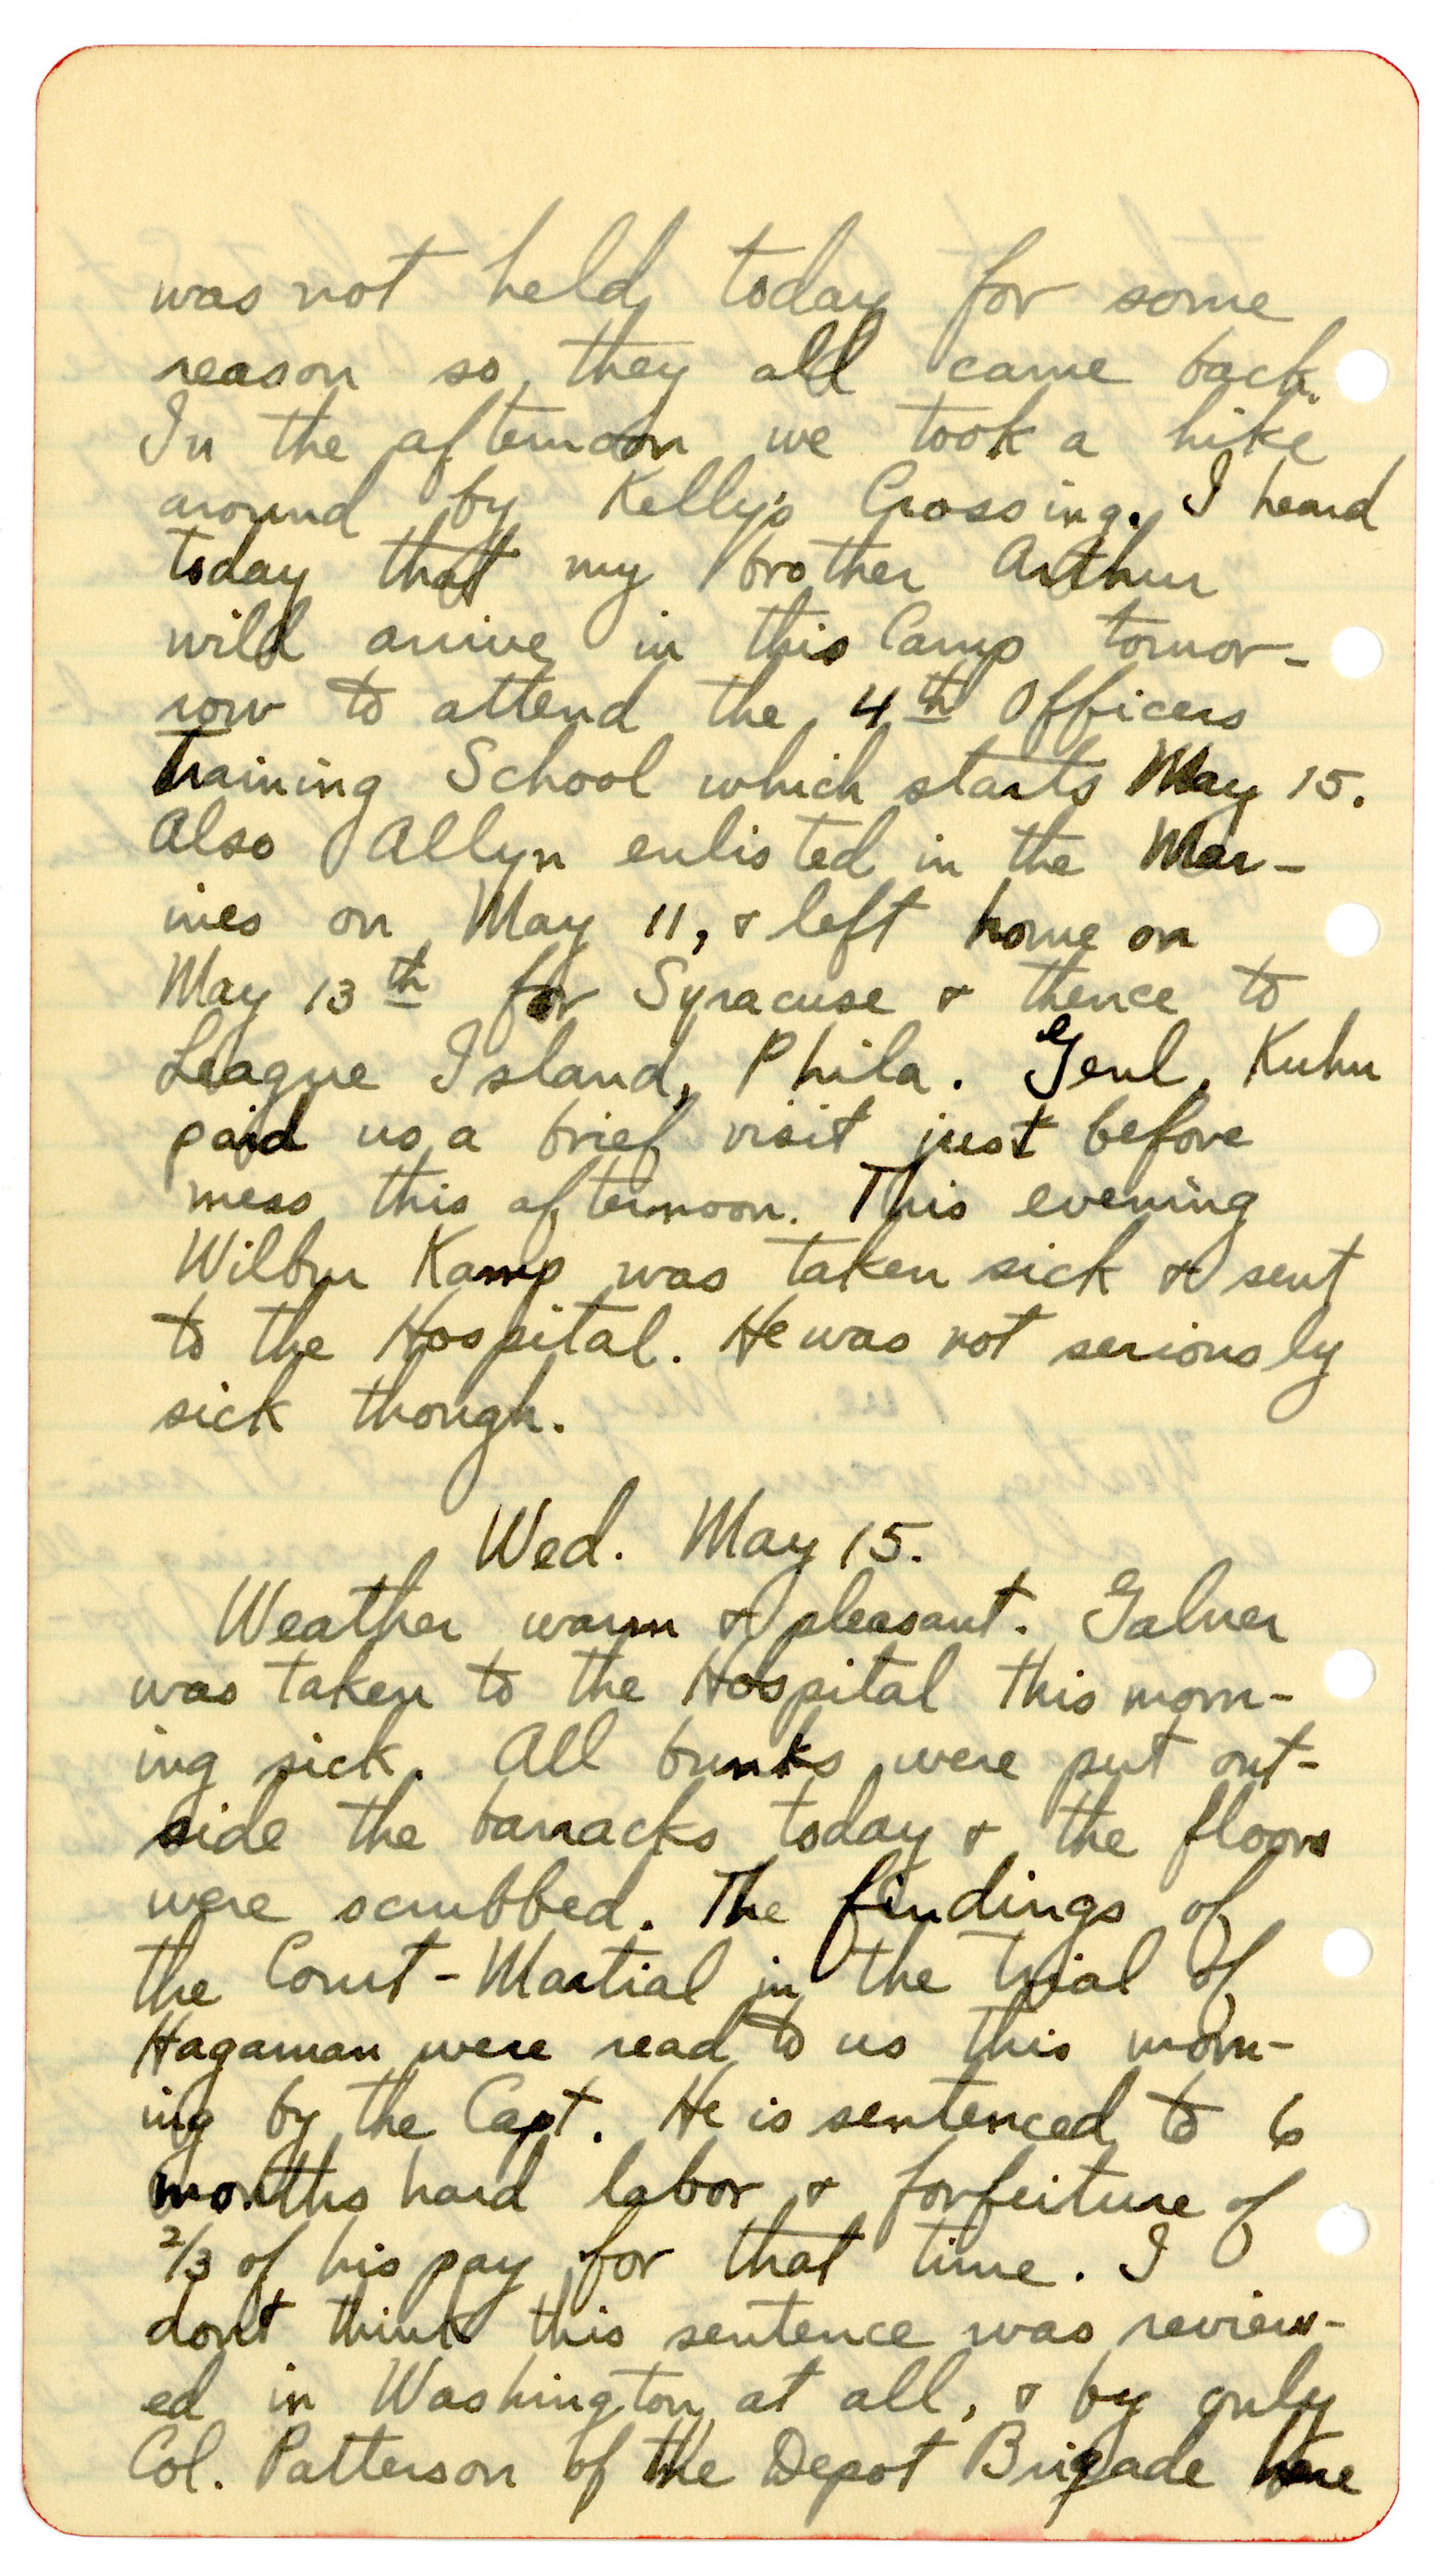 was not held today for some
reason so they all came back.
In the afternoon we took a hike
around by Kelly's Crossing. I heard
today that my brother Arthur
will arrive in this Camp tomor-
row to attend the 4th Officers
Training School which starts May 15.
Also Allyn enlisted in the Mar-
ines on May 11, & left home on
May 13th for Syracuse & thence to
League Island, Phila. Genl. Kuhn
paid us a brief visit just before
mess this afternoon. This evening
Wilbur Kamp was taken sick & sent
to the Hospital. He was not seriously
sick though.
Wed. May 15.
Weather warm & pleasant. Galner
was taken to the Hospital this morn-
ing sick. All bunks were put out-
side the barracks today & the floors
were scrubbed. The findings of
the Court-Martial in the trial of
Hagaman were read to us this morn-
ing by the Capt. He is sentenced to 6
months hard labor & forfeiture of
2/3 of his pay for that time. I
dont think this sentence was review-
ed in Washington at all, & by only
Col. Patterson of the Depot Brigade here